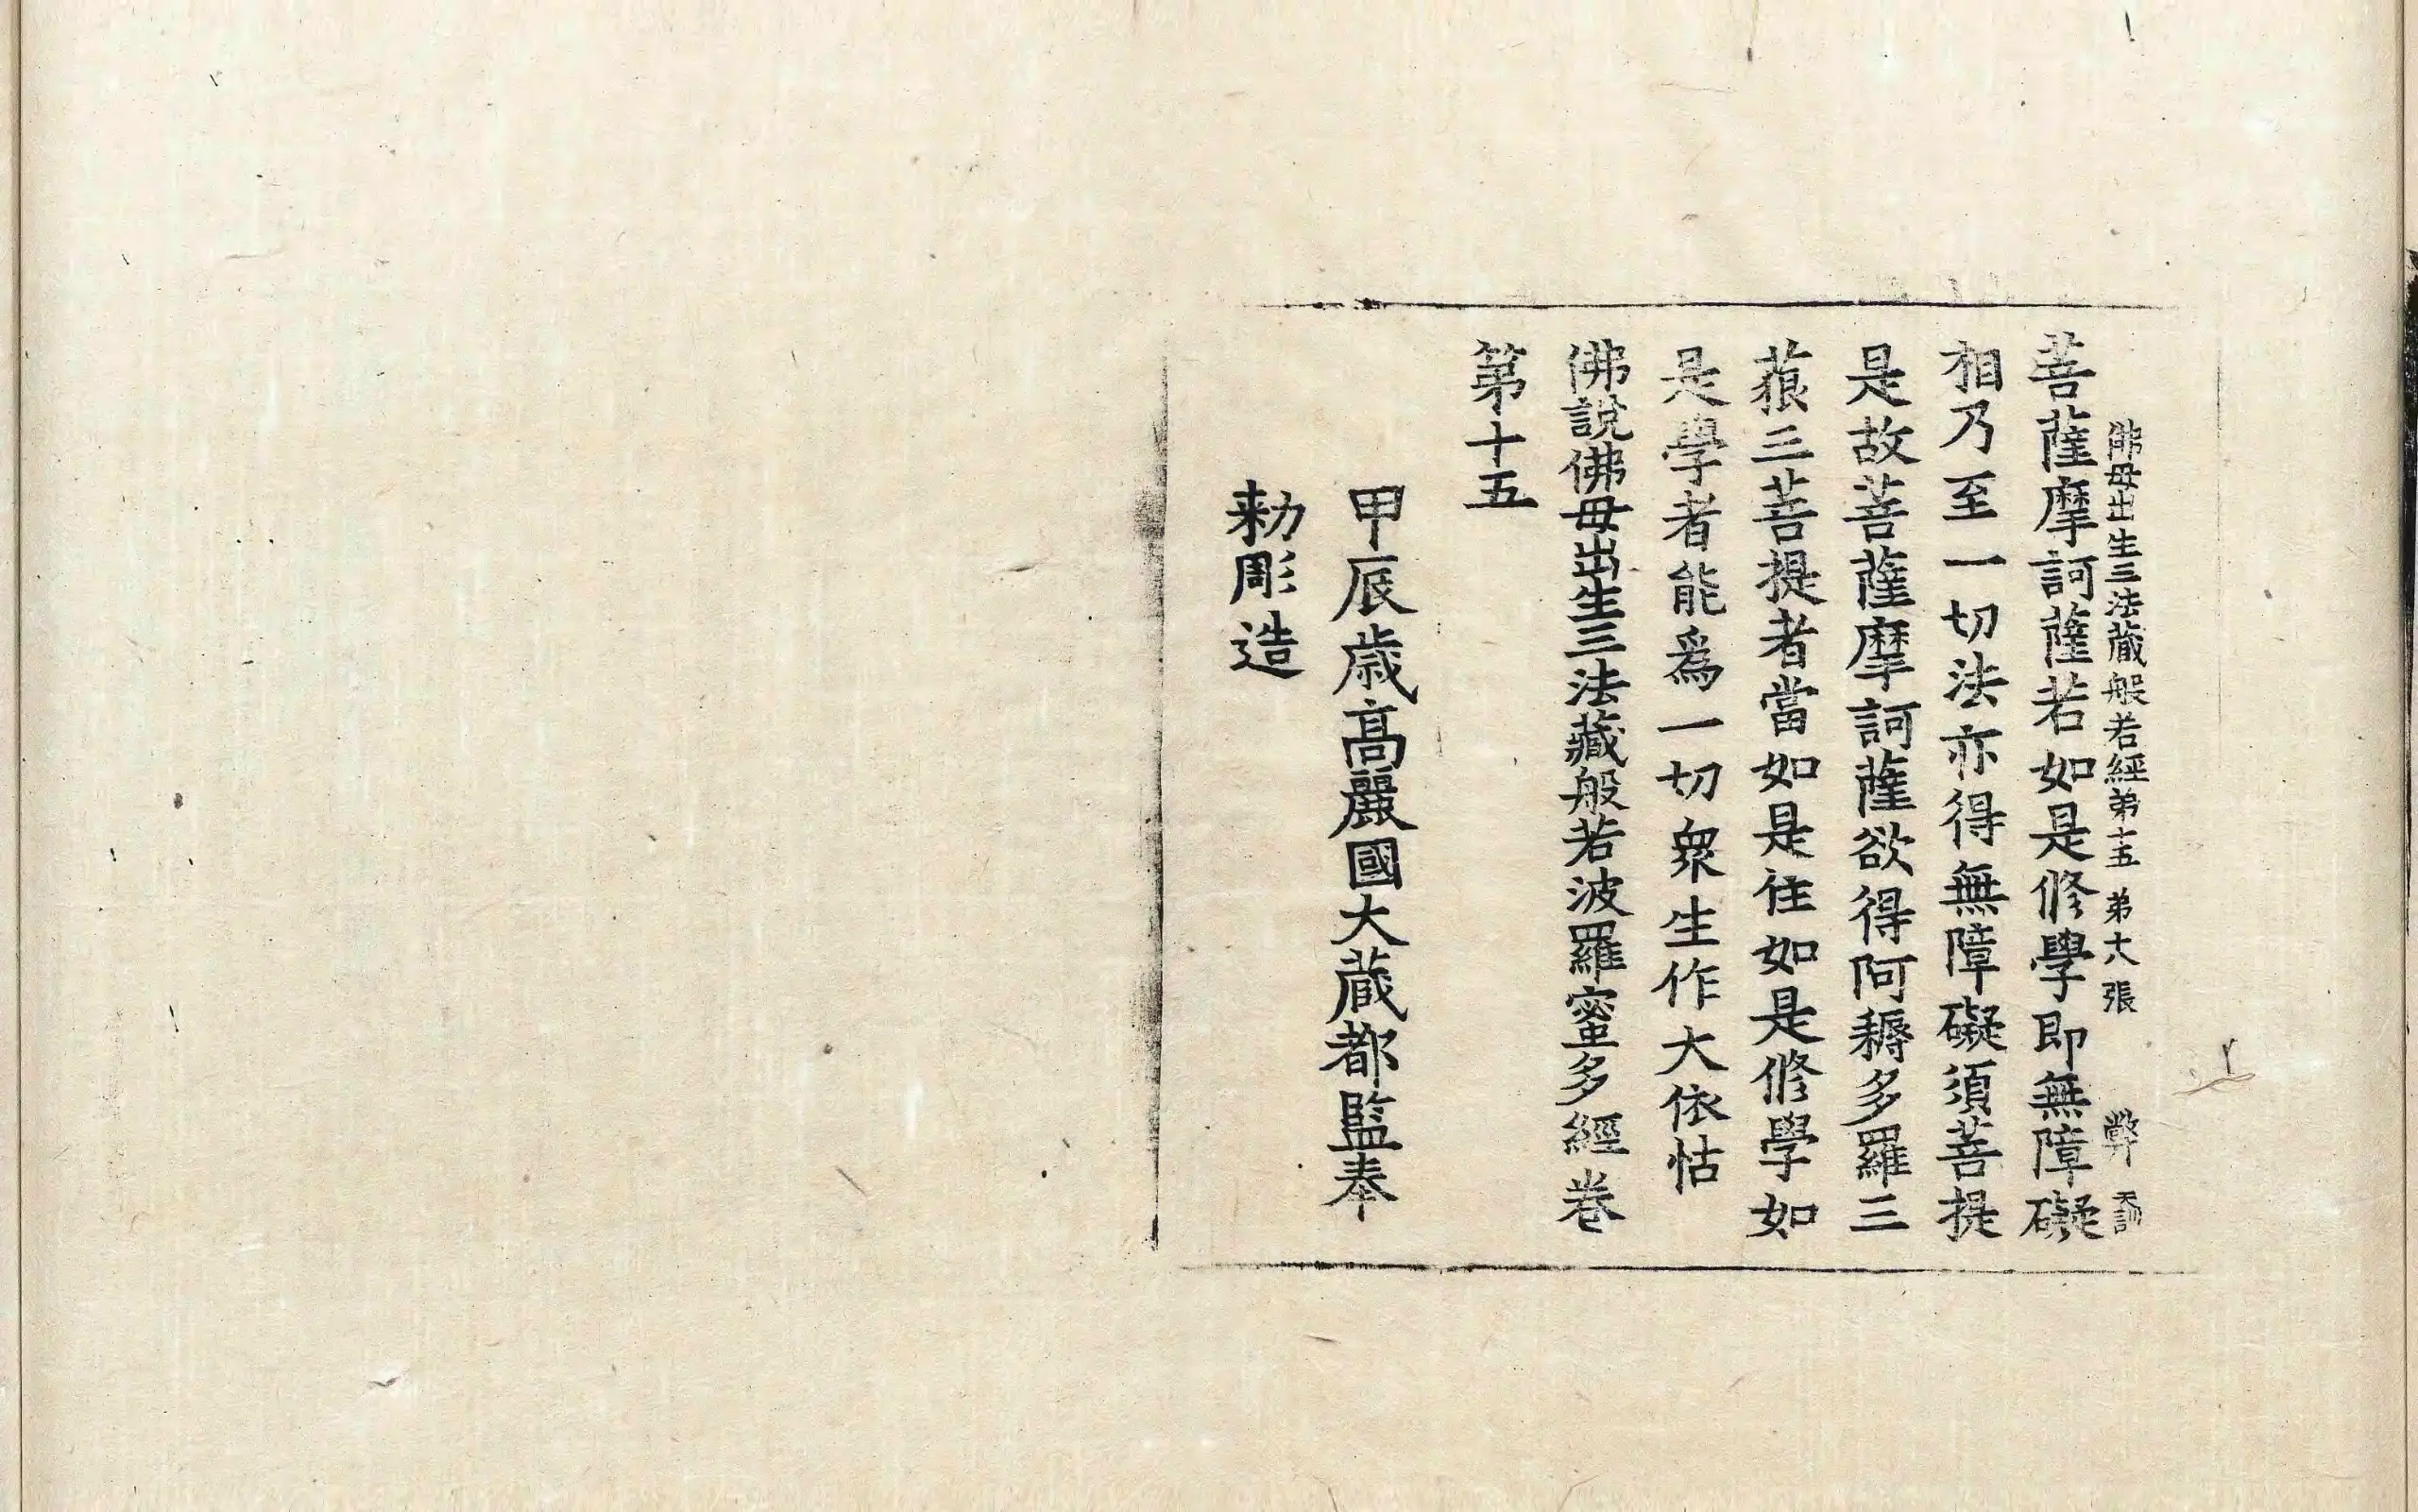 佛母出生三法藏般若經第十五 第十八張 弊
菩薩摩訶薩若如是修學即無障礙
相乃至一切法亦得無障礙須菩提
是故菩薩摩訶薩欲得阿耨多羅三
藐三菩提者當如是住如是修學如
是學者能爲一切衆生作大依怙
佛說佛母出生三法藏般若波羅蜜多經卷
第十五
甲辰歲高麗國大藏都監奉
勅彫造